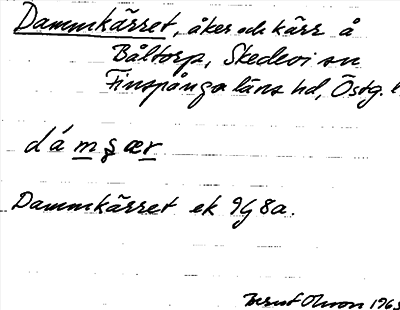 Dammkärret, åker och kärr å
Båltorp, Skedevi sn
Finspånga läns hd, Östg. l
dámʂær
Dammkärret ek 9G 8a.
Olsson 196